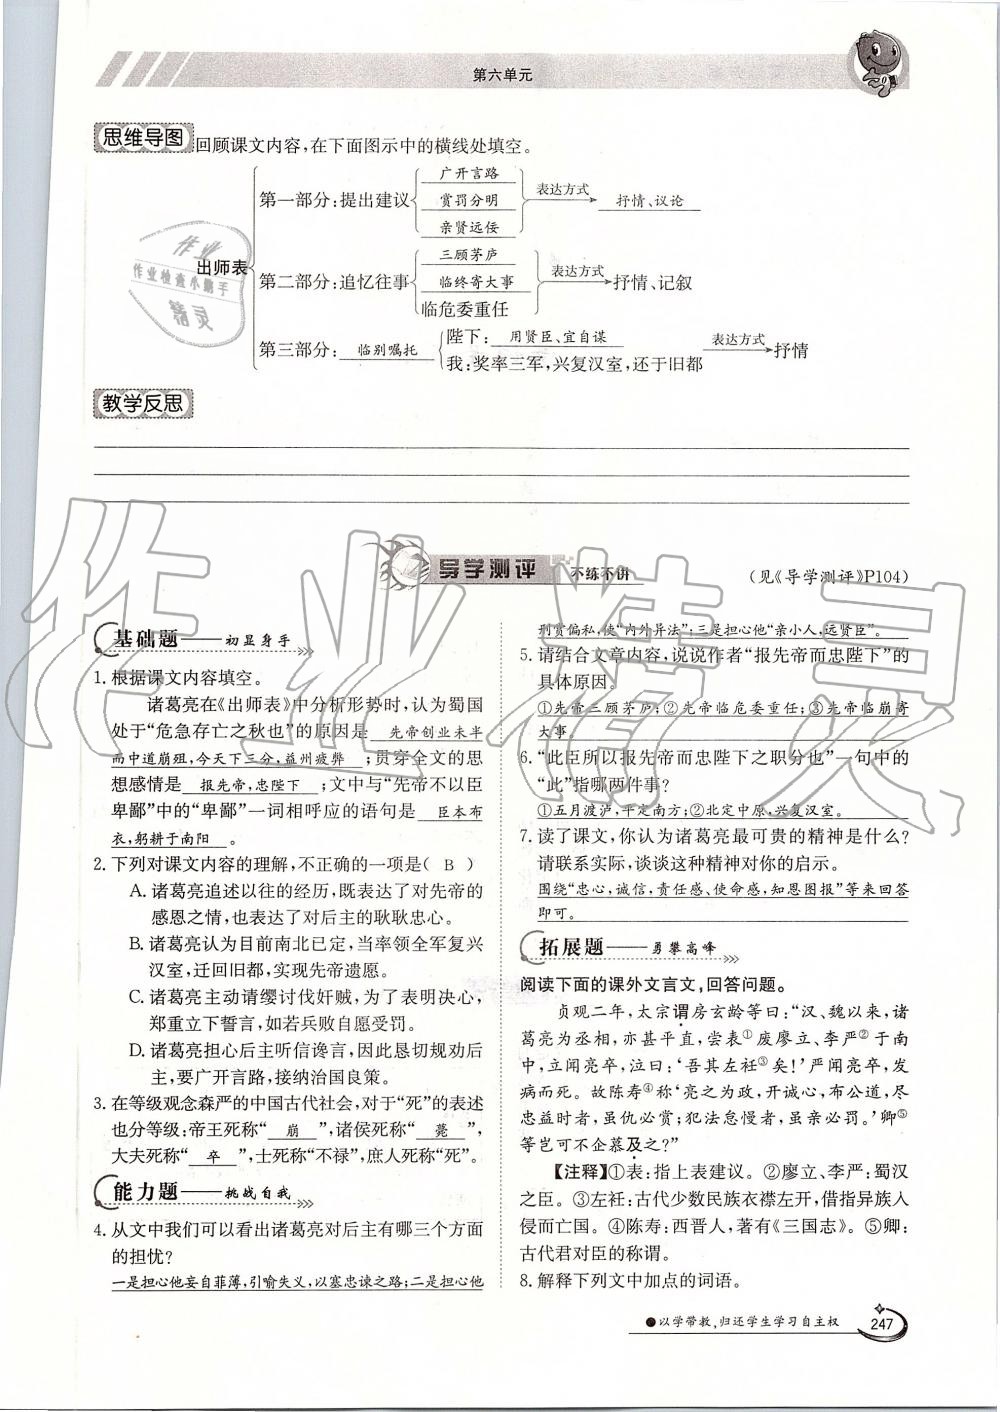 第六单元
思维导图 回顾课文内容,在下面图示中的横线处填空。
出师表
第一部分:提出建议
广开言路
赏罚分明
亲贤远佞
表达方式
抒情、议论
第二部分:追忆往事
三顾茅庐
临终寄大事
临危委重任
表达方式
抒情、记叙
第三部分: 临别嘱托
陛下: 用贤臣、宜自谋
我:奖率三军,兴复汉室,还于旧都
表达方式
抒情
作业
作业检查小帮手
精灵
教学反思
作业精灵
导学测评 不练不讲
(见《导学测评》P104)
基础题——初显身手
1. 根据课文内容填空。
诸葛亮在《出师表》中分析形势时,认为蜀国
处于“危急存亡之秋也”的原因是 先帝创业未半
而中道崩殂,今天下三分,益州疲弊 ;贯穿全文的思
想感情是 报先帝,忠陛下 ;文中与“先帝不以臣
卑鄙”中的“卑鄙”一词相呼应的语句是 臣本布
衣,躬耕于南阳 。
2. 下列对课文内容的理解,不正确的一项是( B )
A. 诸葛亮追述以往的经历,既表达了对先帝的
感恩之情,也表达了对后主的耿耿忠心。
B. 诸葛亮认为目前南北已定,当率领全军复兴
汉室,迁回旧都,实现先帝遗愿。
C. 诸葛亮主动请缨讨伐奸贼,为了表明决心,
郑重立下誓言,如若兵败自愿受罚。
D. 诸葛亮担心后主听信谗言,因此恳切规劝后
主,要广开言路,接纳治国良策。
3. 在等级观念森严的中国古代社会,对于“死”的表述
也分等级:帝王死称“ 崩 ”,诸侯死称“ 薨 ”,
大夫死称“ 卒 ”,士死称“不禄”,庶人死称“死”。
能力题——挑战自我
4. 从文中我们可以看出诸葛亮对后主有哪三个方面
的担忧?
一是担心他妄自菲薄,引喻失义,以塞忠谏之路;二是担心他
刑赏偏私,使“内外异法”;三是担心他“亲小人,远贤臣”。
5. 请结合文章内容,说说作者“报先帝而忠陛下”的
具体原因。
①先帝三顾茅庐;②先帝临危委重任;③先帝临崩寄
大事
6. “此臣所以报先帝而忠陛下之职分也”一句中的
“此”指哪两件事?
①五月渡泸,平定南方;②北定中原,兴复汉室。
7. 读了课文,你认为诸葛亮最可贵的精神是什么?
请联系实际,谈谈这种精神对你的启示。
围绕“忠心,诚信,责任感、使命感,知恩图报”等来回答
即可。
拓展题——勇攀高峰
阅读下面的课外文言文,回答问题。
贞观二年,太宗谓房玄龄等曰:“汉、魏以来,诸
葛亮为丞相,亦甚平直,尝表①废廖立、李严②于南
中,立闻亮卒,泣曰:‘吾其左衽③矣!’严闻亮卒,发
病而死。故陈寿④称‘亮之为政,开诚心,布公道,尽
忠益时者,虽仇必赏;犯法怠慢者,虽亲必罚。’卿⑤
等岂可不企慕及之?”
【注释】①表:指上表建议。②廖立、李严:蜀汉
之臣。③左衽:古代少数民族衣襟左开,借指异族入
侵而亡国。④陈寿:西晋人,著有《三国志》。⑤卿:
古代君对臣的称谓。
8. 解释下列文中加点的词语。
●以学带教,归还学生学习自主权
247